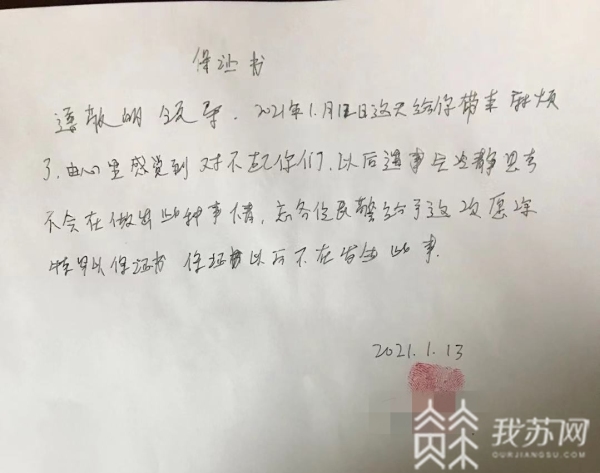 保证书
尊敬的领导，2021年1月12日这天给你带来麻烦
了，由心里感觉到对不起你们，以后遇事会冷静思考
不会在做出此种事情，忘各位民警给予这次原谅
特写以保证书 保证书以后不在发生此事.
2021.1.13
我苏网
OURJIANGSU.COM